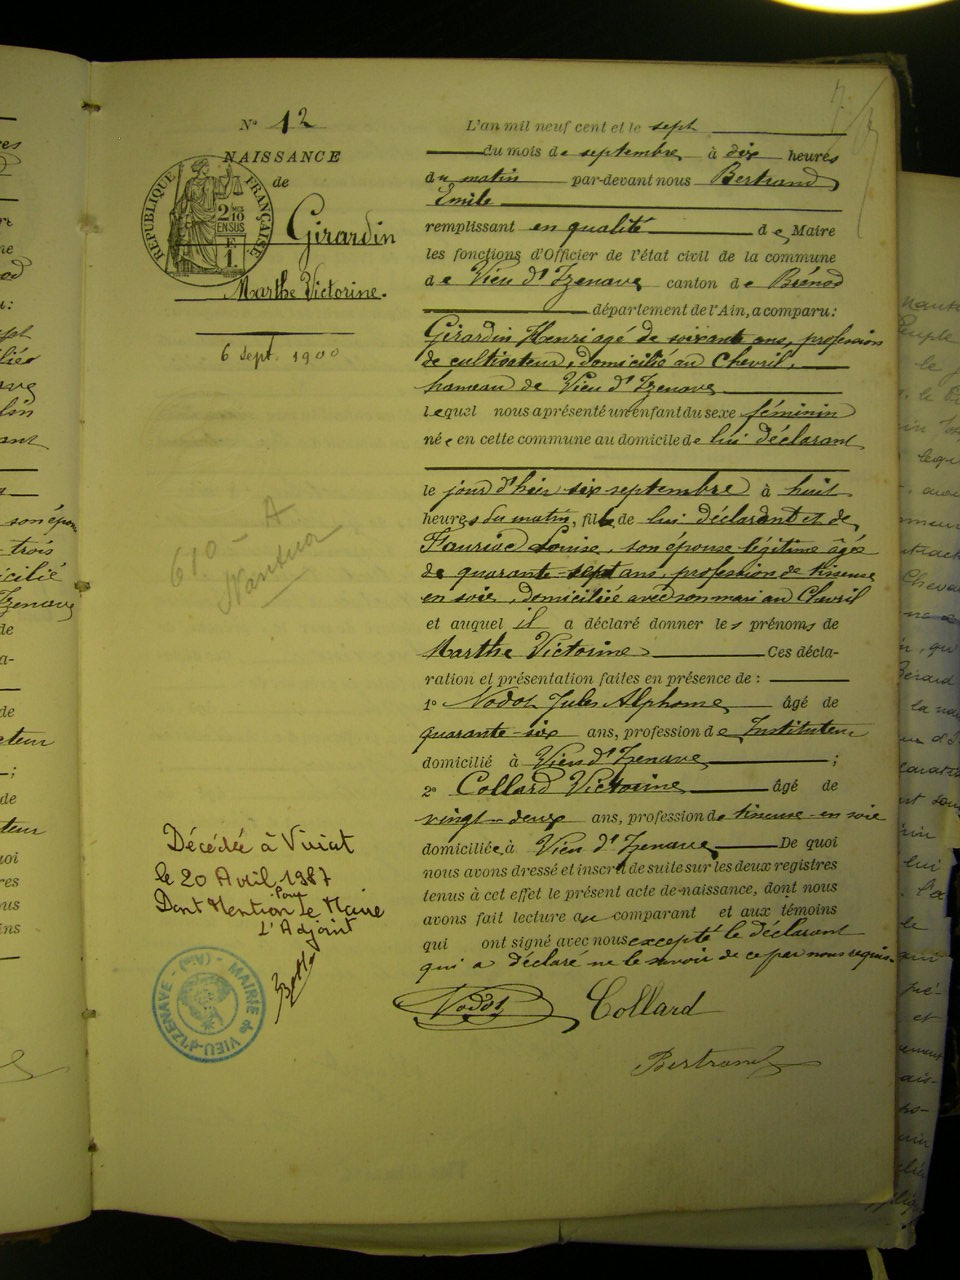 N° 12
NAISSANCE
de
Girardin
Marthe Victorine.
RÉPUBLIQUE FRANÇAISE
2/10 EN SUS
1.
6 sept. 1900
610 - A
Nantua
Décédée à Viriat
le 20 Avril 1987
Dont Mention Pour Le Maire
L'Adjoint
MAIRIE de VIEU-d'IZENAVE - (AIN)
L'an mil neuf cent et le sept
du mois de septembre à dix heures
du matin par-devant nous Bertrand
Emile
remplissant en qualité de Maire
les fonctions d'Officier de l'état civil de la commune
de Vieu d'Izenave canton de Brénod
département de l'Ain, a comparu :
Girardin Henri agé de soixante ans, profession
de cultivateur, domicilié au Chevril,
hameau de Vieu d'Izenave
lequel nous a présenté un enfant du sexe féminin
née en cette commune au domicile de lui déclarant
le jour d'hier six septembre à huit
heures du matin, fille de lui déclarant et de
Louise, son épouse légitime âgée
de quarante-sept ans, profession de tisseuse
en soie, domiciliée avec son mari au Chevril
et auquel il a déclaré donner les prénoms de
Marthe Victorine Ces décla-
ration et présentation faites en présence de :
1° Nodot Jules Alphonse âgé de
quarante-six ans, profession de Instituteur
domicilié à Vieu d'Izenave ;
2° Collard Victorine âgé de
vingt-deux ans, profession de tisseuse en soie
domiciliée à Vieu d'Izenave De quoi
nous avons dressé et inscrit de suite sur les deux registres
tenus à cet effet le présent acte de naissance, dont nous
avons fait lecture au comparant et aux témoins
qui ont signé avec nous excepté le déclarant
qui a déclaré ne le savoir de ce par nous requis.
Nodot Collard
Bertrand